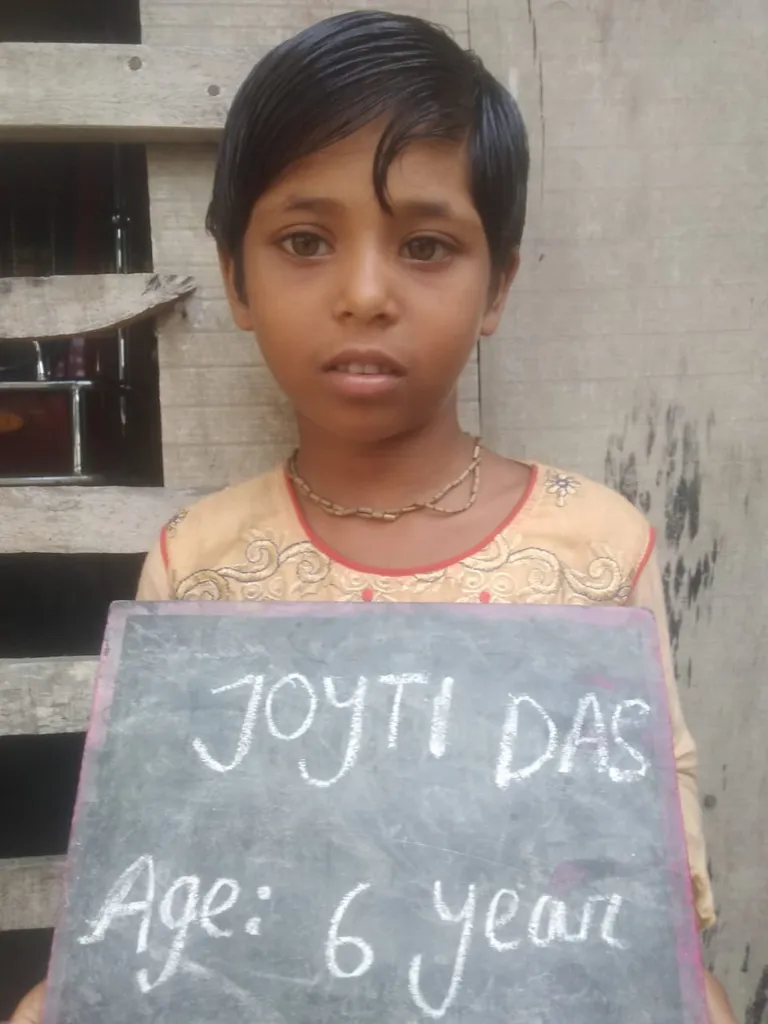 JOYTI DAS
Age: 6 year